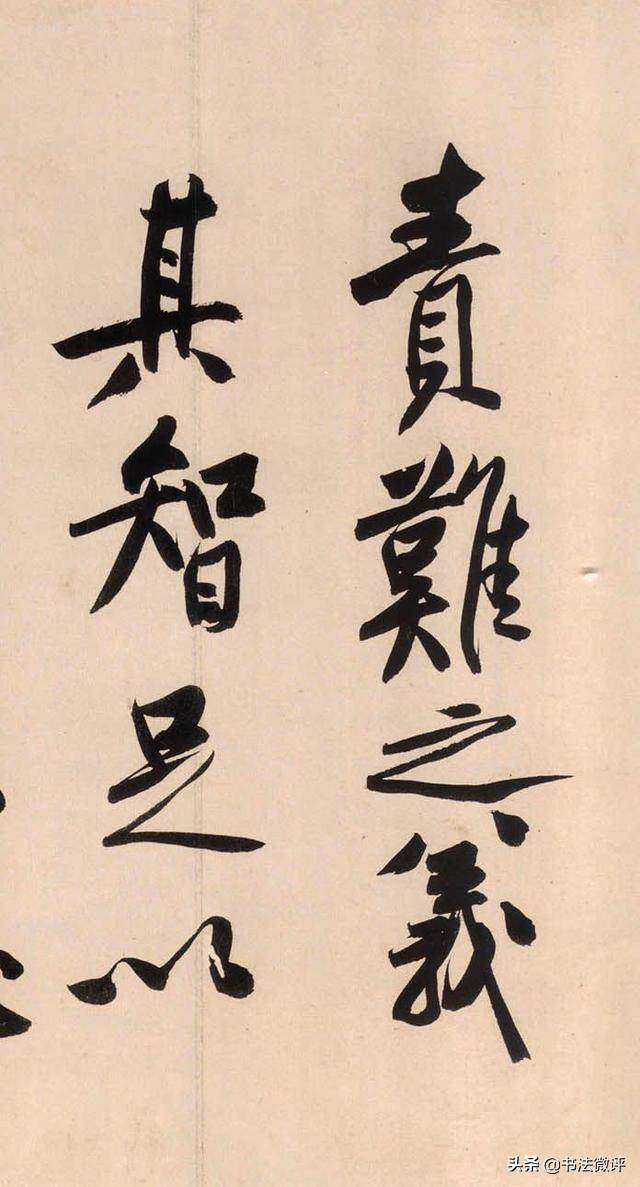 責難之義
其智足以
头条 @书法微评